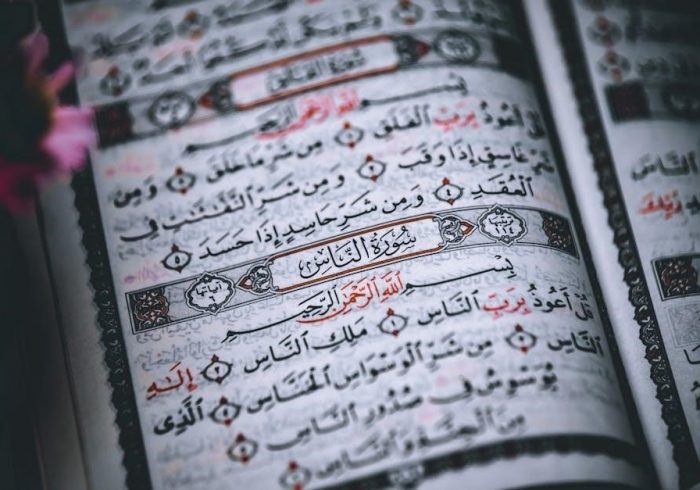 سُورَةُ الفَلَقِ
بِسْمِ ٱللَّهِ ٱلرَّحْمَٰنِ ٱلرَّحِيمِ
قُلْ أَعُوذُ بِرَبِّ ٱلْفَلَقِ ١ مِن شَرِّ مَا خَلَقَ ٢ وَمِن
شَرِّ غَاسِقٍ إِذَا وَقَبَ ٣ وَمِن شَرِّ ٱلنَّفَّٰثَٰتِ فِى
ٱلْعُقَدِ ٤ وَمِن شَرِّ حَاسِدٍ إِذَا حَسَدَ ٥
ترتيبها ١١٤ سُورَةُ النَّاسِ آياتها ٦
بِسْمِ ٱللَّهِ ٱلرَّحْمَٰنِ ٱلرَّحِيمِ
قُلْ أَعُوذُ بِرَبِّ ٱلنَّاسِ ١ مَلِكِ ٱلنَّاسِ ٢ إِلَٰهِ
ٱلنَّاسِ ٣ مِن شَرِّ ٱلْوَسْوَاسِ ٱلْخَنَّاسِ ٤ ٱلَّذِى
يُوَسْوِسُ فِى صُدُورِ ٱلنَّاسِ ٥
مِنَ ٱلْجِنَّةِ وَٱلنَّاسِ ٦